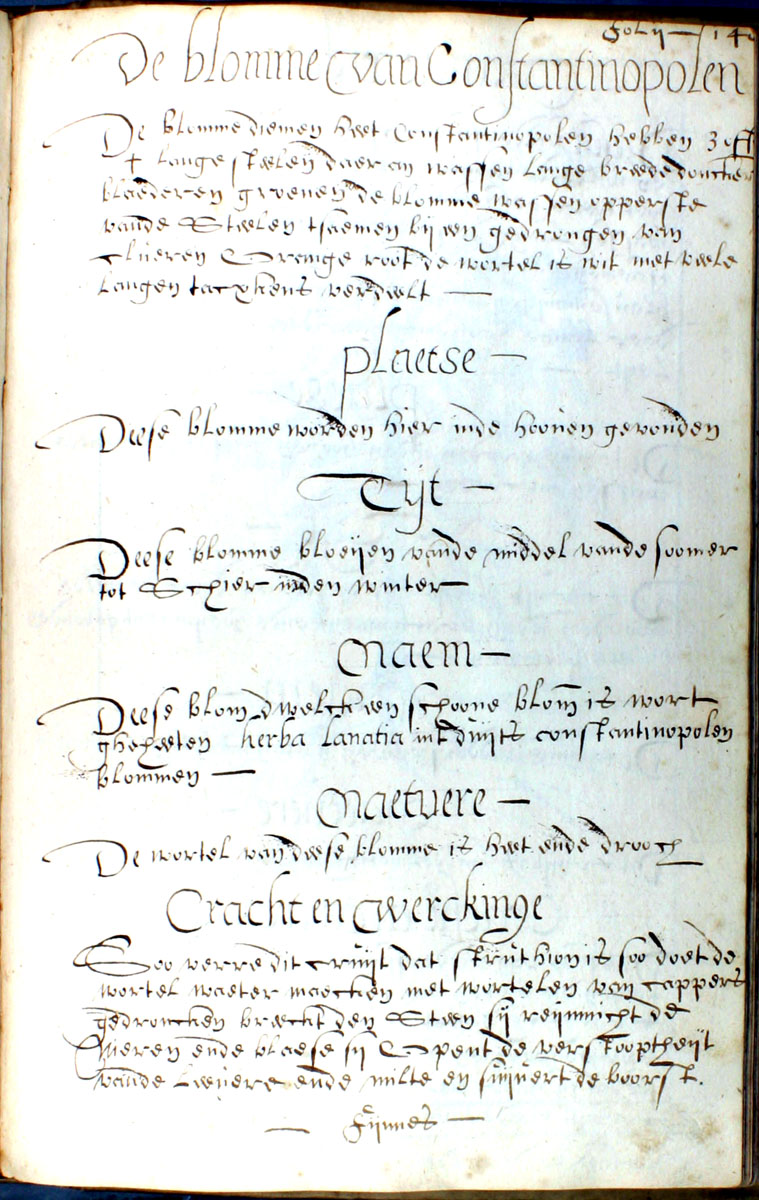 Fol ij — 14
De blomme van Constantinopolen
De blomme diemen heet Constantinopolen hebben 3 oft
4 lange steelen daer an wassen lange breede doncker
blaederen groenen de blomme wassen opperste
vande Steelen tsaemen bij een gedrongen van
clueren Orainge root de wortel is wit met veele
langen tacxkens verdeelt —
Plaetse —
Deese blomme worden hier inde hooven gevonden
Tijt —
Deese blomme bloeijen vande middel vande soomer
tot Schier inden winter
Naem —
Deese blom dwelck een schoone blom is wort
gheheeten herba lanatia int duijts constantinopolen
blommen —
Naetuere —
De wortel van deese blomme is heet ende drooch
Cracht en werckinge
Soo verre dit cruijt dat struthion is soo doet de
wortel waeter maecken met wortelen van cappers
gedroncken breeckt den Steen sij reijnnicht de
Nieren ende blaese sij Opent de verstooptheijt
vande Leevere ende milte en suijvert de boorst.
— Fijnnes —